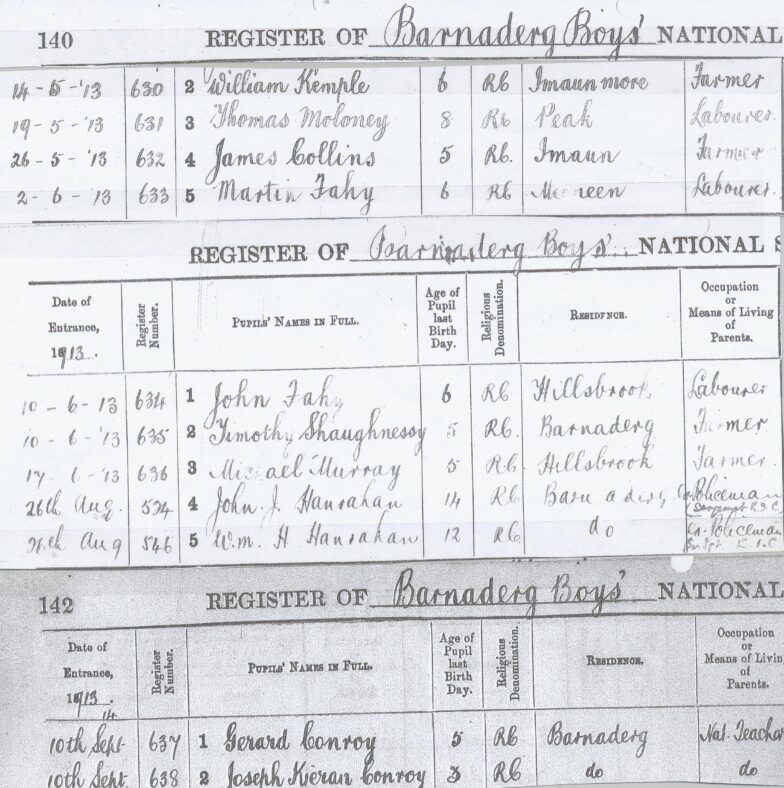 140 REGISTER OF Barnaderg Boys' NATIONAL
14-5-'13 630 2 William Kemple 6 RC Imaun more Farmer
19-5-'13 631 3 Thomas Moloney 8 RC Peak Labourer
26-5-'13 632 4 James Collins 5 RC. Imaun Farmer
2-6-13 633 5 Martin Fahy 6 RC Labourer
REGISTER OF Barnaderg Boys' NATIONAL S
Date of Entrance, 1913. Register Number. PUPILS' NAMES IN FULL. Age of Pupil last Birth Day. Religious Denomination. RESIDENCE. Occupation or Means of Living of Parents.
10-6-13 634 1 John Fahy 6 RC Hillsbrook Labourer
10-6-'13 635 2 Timothy Shaughnessy 5 RC. Barnaderg Farmer
17 6-'13 636 3 Michael Murray 5 RC Hillsbrook Farmer.
26th Aug. 534 4 John J. Hanrahan 14 RC Barnaderg Ex Policeman
(Sergeant R.I.C
26th Aug 546 5 W.m. H Hanrahan 12 RC do Ex-Policeman
142 REGISTER OF Barnaderg Boys' NATIONAL
Date of Entrance, 1913. 14 Register Number. PUPILS' NAMES IN FULL. Age of Pupil last Birth Day. Religious Denomination. RESIDENCE. Occupation or Means of Livin of Parents.
10th Sept 637 1 Gerard Conroy 5 RC Barnaderg Nat. Teacher
10th Sept. 638 2 Joseph Kieran Conroy 3 RC do do